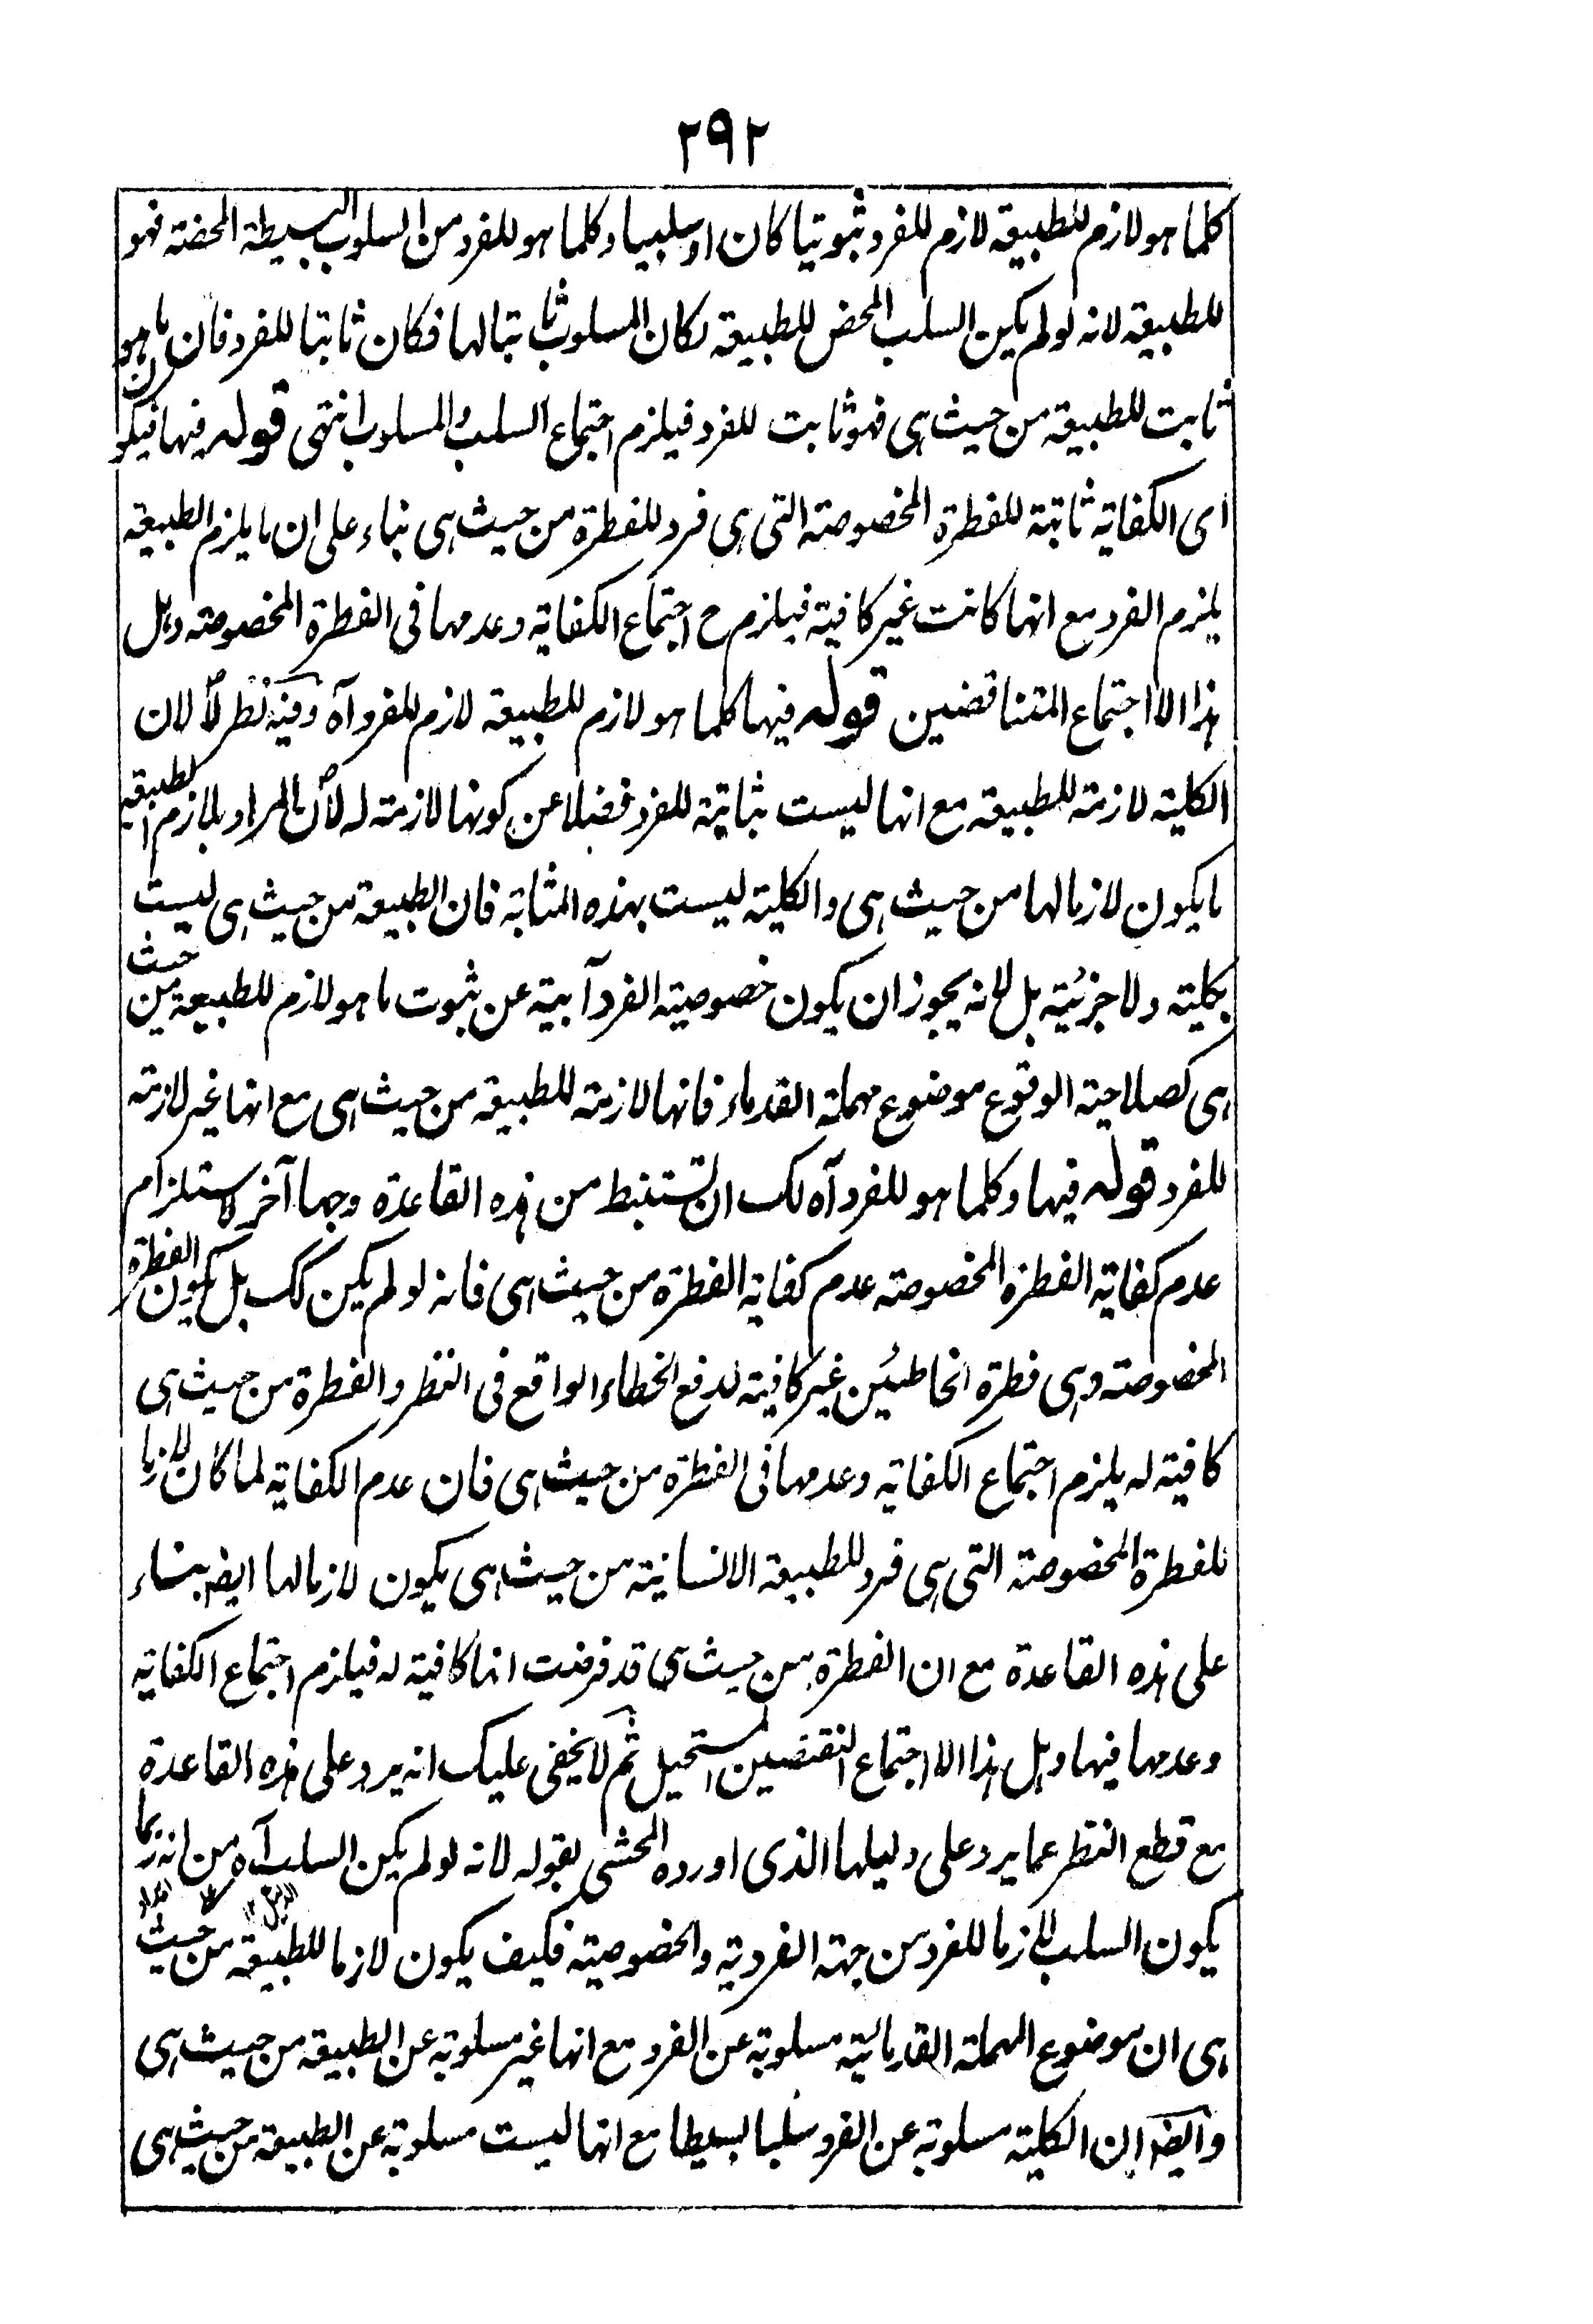 ٢٩٢
كلما هو لازم للطبيعة لازم للفرد ثبوتيا كان او سلبيا وكلما هو للفرد من السلوب البسيطة المحضة فهو
للطبيعة لانه لو لم يكن السلب المحض للطبيعة لكان المسلوب ثابتا لها فكان ثابتا للفرد فان ما هو
ثابت للطبيعة من حيث هى فهو ثابت للفرد فيلزم اجتماع السلب والمسلوب انتهى قوله فيها فيكون
اى الكفاية ثابتة للفطرة المخصوصة التى هى فرد للفطرة من حيث هى بناء على ان ما يلزم الطبيعة
يلزم الفرد مع انها كانت غير كافية فيلزم ح اجتماع الكفاية وعدمها فى الفطرة المخصوصة وهل
هذا الا اجتماع المتناقضين قوله فيها كلما هو لازم للطبيعة لازم للفرد آه وفيه نظر لا لان
الكلية لازمة للطبيعة مع انها ليست بثابتة للفرد فضلا عن كونها لازمة له لان المراد بلازم الطبيعة
ما يكون لازما لها من حيث هى والكلية ليست بهذه المثابة فان الطبيعة من حيث هى ليست
بكلية ولا جزئية بل لانه يجوز ان يكون خصوصية الفرد آبية عن ثبوت ما هو لازم للطبيعة من حيث
هى كصلاحية الوقوع موضوع مهملة القدماء فانها لازمة للطبيعة من حيث هى مع انها غير لازمة
للفرد قوله فيها وكلما هو للفرد آه لك ان تستنبط من هذه القاعدة وجها آخر لاستلزام
عدم كفاية الفطرة المخصوصة عدم كفاية الفطرة من حيث هى فانه لو لم يكن كك بل يكون الفطرة
المخصوصة وهى فطرة الخاطئين غير كافية لدفع الخطاء الواقع فى النظر والفطرة من حيث هى
كافية له يلزم اجتماع الكفاية وعدمها فى الفطرة من حيث هى فان عدم الكفاية لما كان لازما
للفطرة المخصوصة التى هى فرد للطبيعة الانسانية من حيث هى يكون لازما لها ايضا بناء
على هذه القاعدة مع ان الفطرة من حيث هى قد فرضت انها كافية له فيلزم اجتماع الكفاية
وعدمها فيها وهل هذا الا اجتماع النقيضين المستحيل ثم لا يخفى عليك انه يرد على هذه القاعدة
مع قطع النظر عما يرد على دليلها الذى اورده المحشى بقوله لانه لو لم يكن السلب آه من انه ربما
يكون السلب لازما للفرد من جهة الفردية والخصوصية فكيف يكون لازما للطبيعة من حيث
هى ان موضوع المهملة القدمائية مسلوبة عن الفرد مع انها غير مسلوبة عن الطبيعة من حيث هى
وايضا ان الكلية مسلوبة عن الفرد سلبا بسيطا مع انها ليست مسلوبة عن الطبيعة من حيث هى